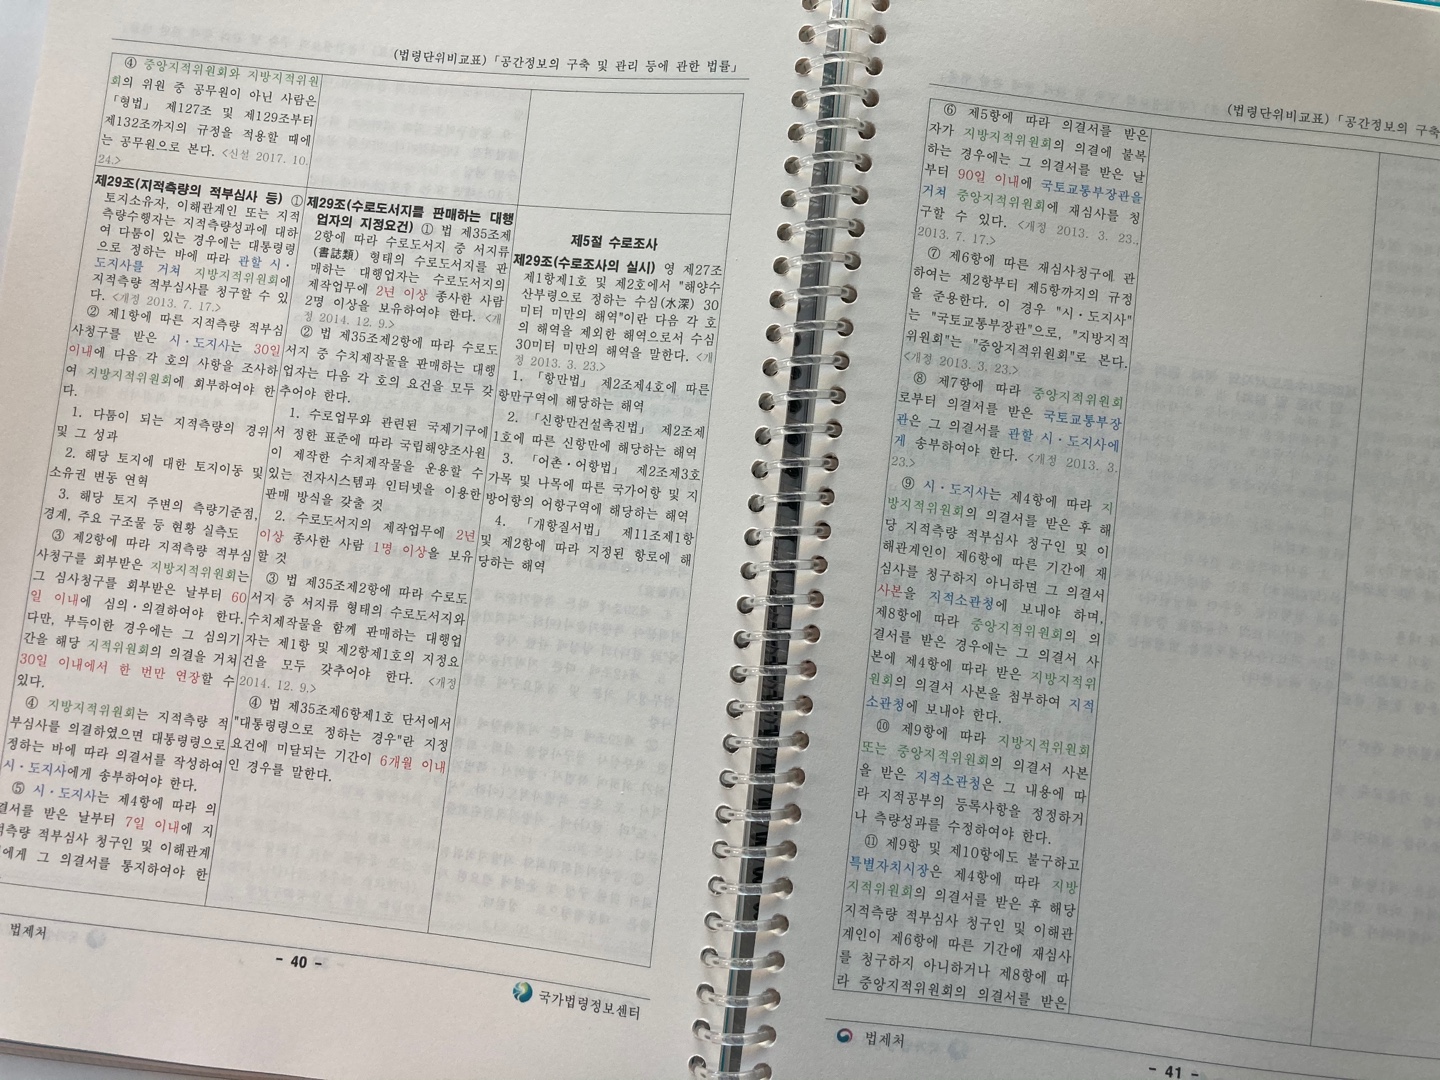 (법령단위비교표) 「공간정보의 구축 및 관리 등에 관한 법률」
④ 중앙지적위원회와 지방지적위원
회의 위원 중 공무원이 아닌 사람은
「형법」 제127조 및 제129조부터
제132조까지의 규정을 적용할 때에
는 공무원으로 본다. <신설 2017. 10.
24.>
제29조(지적측량의 적부심사 등) ①
토지소유자, 이해관계인 또는 지적
측량수행자는 지적측량성과에 대하
여 다툼이 있는 경우에는 대통령령
으로 정하는 바에 따라 관할 시·
도지사를 거쳐 지방지적위원회에
지적측량 적부심사를 청구할 수 있
다. <개정 2013. 7. 17.>
② 제1항에 따른 지적측량 적부심
사청구를 받은 시·도지사는 30일
이내에 다음 각 호의 사항을 조사하
여 지방지적위원회에 회부하여야 한
다.
1. 다툼이 되는 지적측량의 경위
및 그 성과
2. 해당 토지에 대한 토지이동 및
소유권 변동 연혁
3. 해당 토지 주변의 측량기준점,
경계, 주요 구조물 등 현황 실측도
③ 제2항에 따라 지적측량 적부심
사청구를 회부받은 지방지적위원회는
그 심사청구를 회부받은 날부터 60
일 이내에 심의·의결하여야 한다.
다만, 부득이한 경우에는 그 심의기
간을 해당 지적위원회의 의결을 거쳐
30일 이내에서 한 번만 연장할 수
있다.
④ 지방지적위원회는 지적측량 적
부심사를 의결하였으면 대통령령으로
정하는 바에 따라 의결서를 작성하여
시·도지사에게 송부하여야 한다.
⑤ 시·도지사는 제4항에 따라 의
결서를 받은 날부터 7일 이내에 지
적측량 적부심사 청구인 및 이해관계
에게 그 의결서를 통지하여야 한
제29조(수로도서지를 판매하는 대행
업자의 지정요건) ① 법 제35조제
2항에 따라 수로도서지 중 서지류
(書誌類) 형태의 수로도서지를 판
매하는 대행업자는 수로도서지의
제작업무에 2년 이상 종사한 사람
2명 이상을 보유하여야 한다. <개
정 2014. 12. 9.>
② 법 제35조제2항에 따라 수로도
서지 중 수치제작물을 판매하는 대행
업자는 다음 각 호의 요건을 모두 갖
추어야 한다.
1. 수로업무와 관련된 국제기구에
서 정한 표준에 따라 국립해양조사원
이 제작한 수치제작물을 운용할 수
있는 전자시스템과 인터넷을 이용한
판매 방식을 갖출 것
2. 수로도서지의 제작업무에 2년
이상 종사한 사람 1명 이상을 보유
할 것
③ 법 제35조제2항에 따라 수로도
서자 중 서지류 형태의 수로도서지와
수치제작물을 함께 판매하는 대행업
자는 제1항 및 제2항제1호의 지정요
건을 모두 갖추어야 한다. <개정
2014. 12. 9.>
④ 법 제35조제6항제1호 단서에서
"대통령령으로 정하는 경우"란 지정
요건에 미달되는 기간이 6개월 이내
인 경우를 말한다.
제5절 수로조사
제29조(수로조사의 실시) 영 제27조
제1항제1호 및 제2호에서 "해양수
산부령으로 정하는 수심(水深) 30
미터 미만의 해역"이란 다음 각 호
의 해역을 제외한 해역으로서 수심
30미터 미만의 해역을 말한다. <개
정 2013. 3. 23.>
1. 「항만법」 제2조제4호에 따른
항만구역에 해당하는 해역
2. 「신항만건설촉진법」 제2조제
1호에 따른 신항만에 해당하는 해역
3. 「어촌·어항법」 제2조제3호
가목 및 나목에 따른 국가어항 및 지
방어항의 어항구역에 해당하는 해역
4. 「개항질서법」 제11조제1항
및 제2항에 따라 지정된 항로에 해
당하는 해역
법제처
- 40 -
국가법령정보센터
(법령단위비교표) 「공간정보의 구축
⑥ 제5항에 따라 의결서를 받은
자가 지방지적위원회의 의결에 불복
하는 경우에는 그 의결서를 받은 날
부터 90일 이내에 국토교통부장관을
거쳐 중앙지적위원회에 재심사를 청
구할 수 있다. <개정 2013. 3. 23.,
2013. 7. 17.>
⑦ 제6항에 따른 재심사청구에 관
하여는 제2항부터 제5항까지의 규정
을 준용한다. 이 경우 "시·도지사"
는 "국토교통부장관"으로, "지방지적
위원회"는 "중앙지적위원회"로 본다.
<개정 2013. 3. 23.>
⑧ 제7항에 따라 중앙지적위원회
로부터 의결서를 받은 국토교통부장
관은 그 의결서를 관할 시·도지사에
게 송부하여야 한다. <개정 2013. 3.
23.>
⑨ 시·도지사는 제4항에 따라 지
방지적위원회의 의결서를 받은 후 해
당 지적측량 적부심사 청구인 및 이
해관계인이 제6항에 따른 기간에 재
심사를 청구하지 아니하면 그 의결서
사본을 지적소관청에 보내야 하며,
제8항에 따라 중앙지적위원회의 의
결서를 받은 경우에는 그 의결서 사
본에 제4항에 따라 받은 지방지적위
원회의 의결서 사본을 첨부하여 지적
소관청에 보내야 한다.
⑩ 제9항에 따라 지방지적위원회
또는 중앙지적위원회의 의결서 사본
을 받은 지적소관청은 그 내용에 따
라 지적공부의 등록사항을 정정하거
나 측량성과를 수정하여야 한다.
⑪ 제9항 및 제10항에도 불구하고
특별자치시장은 제4항에 따라 지방
지적위원회의 의결서를 받은 후 해당
지적측량 적부심사 청구인 및 이해관
계인이 제6항에 따른 기간에 재심사
를 청구하지 아니하거나 제8항에 따
라 중앙지적위원회의 의결서를 받은
법제처
- 41 -